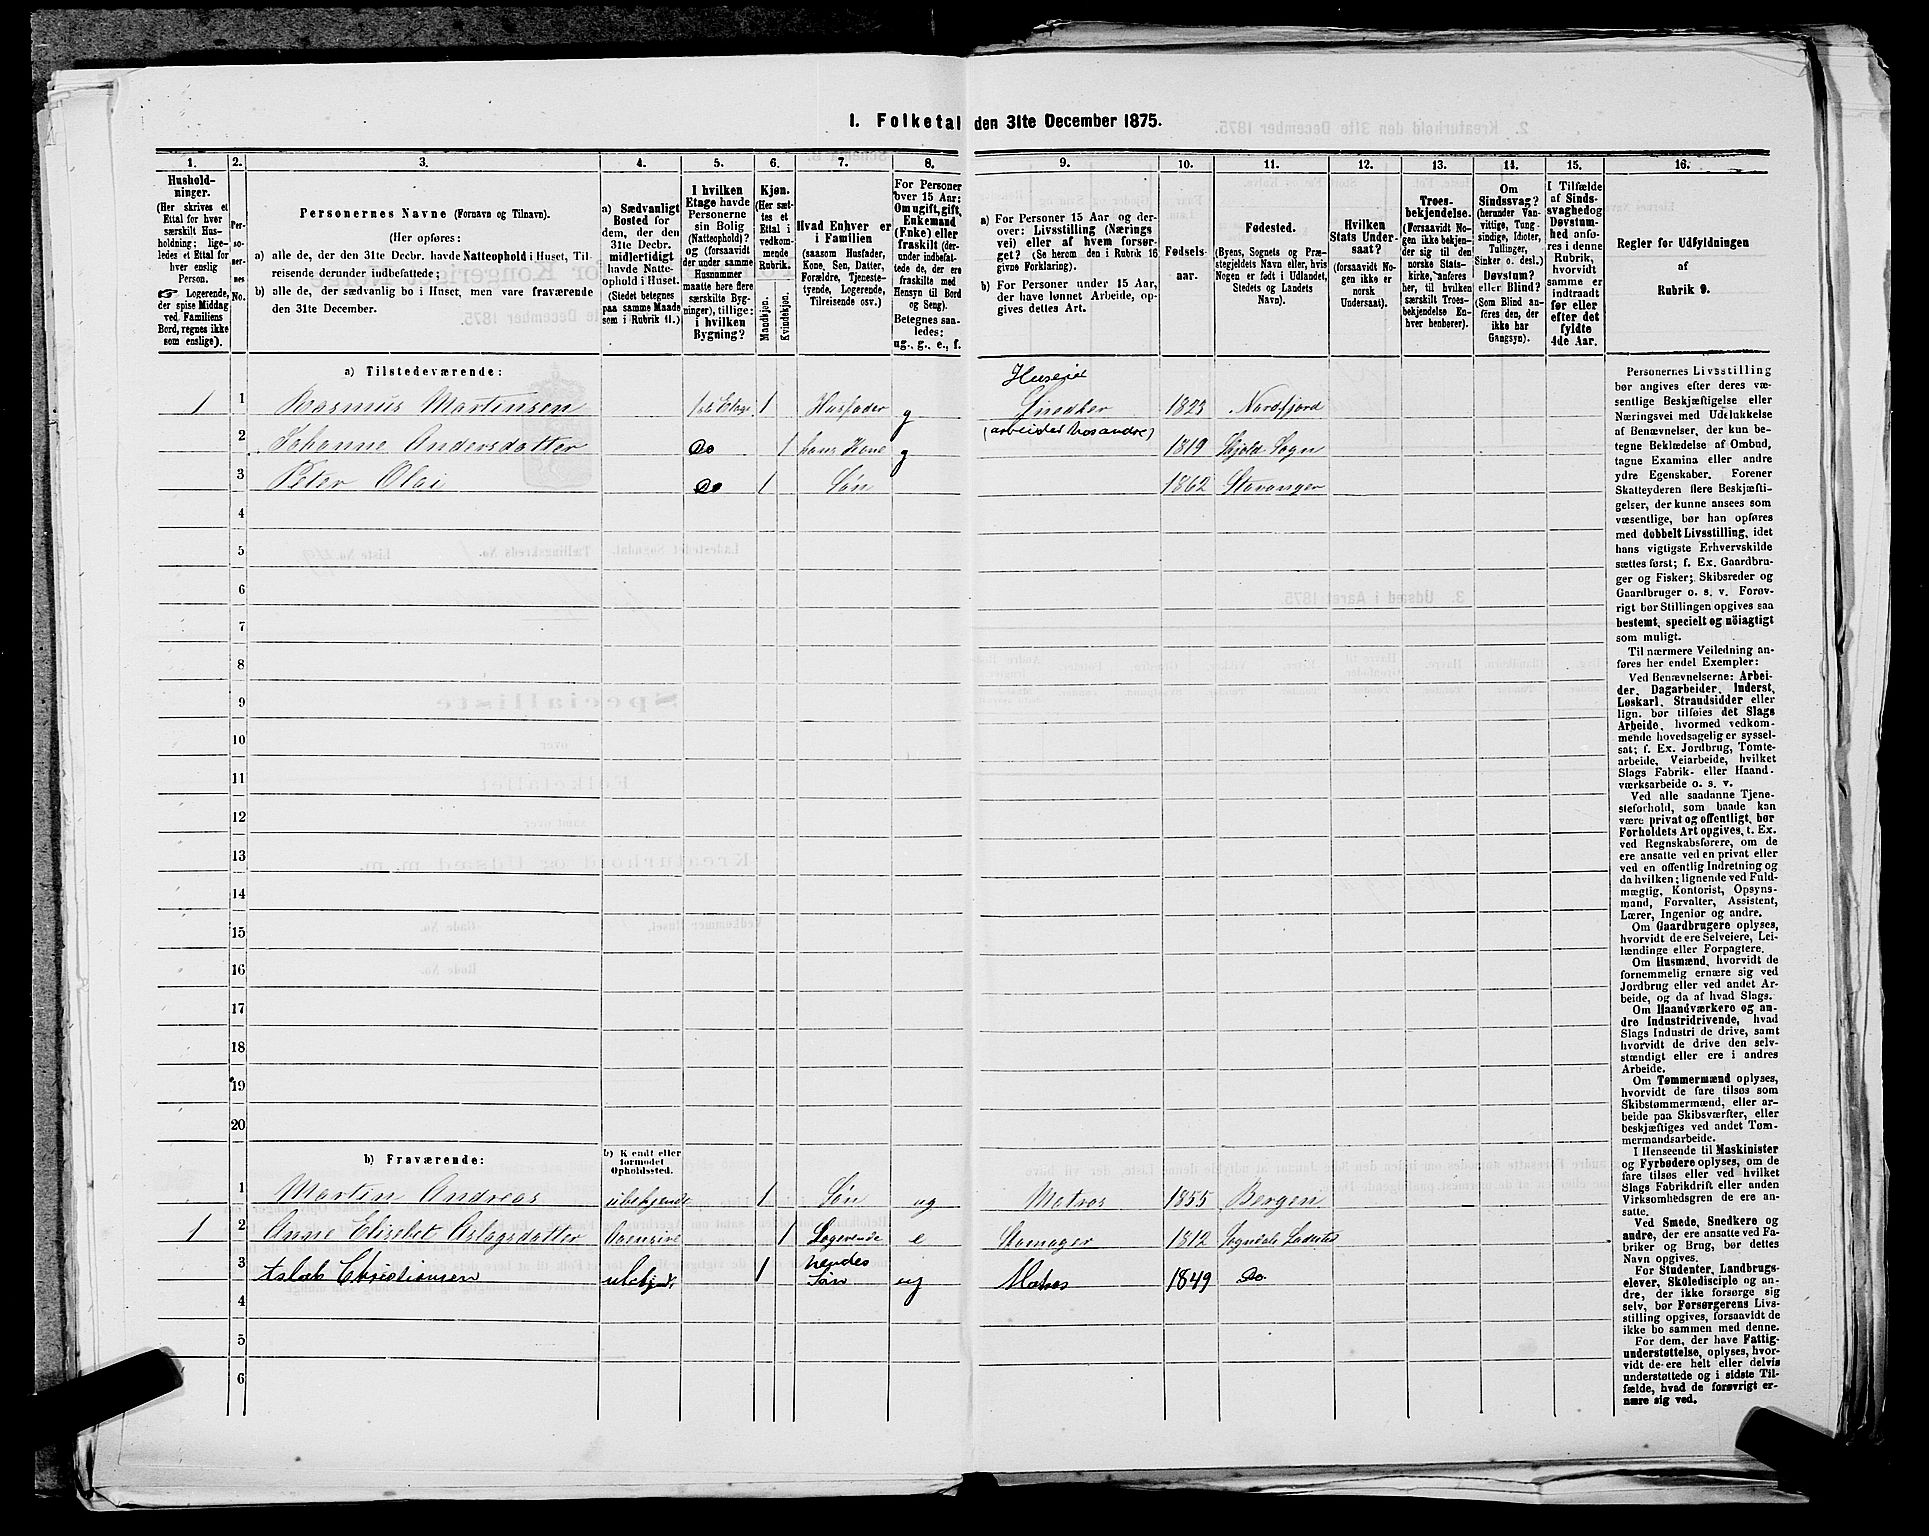 1. Folketal den 31te December 1875.
1. 2. 3. 4. 5. 6. 7. 8. 9. 10. 11. 12. 13. 14. 15. 16.
Hushold-
ninger.
(Her skrives et
Ettal for hver
særskilt Hus-
holdning; lige-
ledes et Ettal for
hver enslig
Person.
☞ Logerende,
der spise Middag
ved Familiens
Bord, regnes ikke
som enslige).
Per-
so-
ner-
nes
No.
Personernes Navne (Fornavn og Tilnavn).
(Her opføres:
a) alle de, der den 31te Decbr. havde Natteophold i Huset, Til-
reisende derunder indbefattede;
b) alle de, der sædvanlig bo i Huset, men vare fraværende
den 31te December.
a) Sædvanligt
Bosted for
dem, der den
31te Decbr.
midlertidigt
havde Natte-
ophold i Huset.
(Stedet betegnes
paa samme Maade
som i Rubrik 11.)
I hvilken
Etage havde
Personerne
sin Bolig
(Natteophold)?
og (forsaavidt
der under samme
Husnummer
maatte høre flere
særskilte Byg-
ninger), tillige:
i hvilken
Bygning?
Kjøn.
(Her sæt-
tes et
Ettal i
vedkom-
mende
Rubrik.
Mandkjøn.
Kvindekjøn.
Hvad Enhver er
i Familien
(saasom Husfader,
Kone, Søn, Datter,
Forældre, Tjeneste-
tyende, Logerende,
Tilreisende osv.)
For Personer
over 15 Aar:
Om ugift, gift,
Enkemand
(Enke) eller
fraskilt (der-
under indbefat-
tede de, der ere
fraskilte med
Hensyn til Bord
og Seng).
Betegnes saa-
ledes:
ug., g., e., f.
a) For Personer 15 Aar og der-
over: Livsstilling (Nærings
vei) eller af hvem forsør-
get? (Se herom den i Rubrik 16
givne Forklaring).
b) For Personer under 15 Aar,
der have lønnet Arbeide, op-
gives dettes Art.
Fødsels-
aar.
Fødested.
(Byens, Sognets og Præ-
stegjeldets Navn eller, hvis
Nogen er født i Udlandet,
Stedets og Landets
Navn).
Hvilken
Stats Under-
saat?
(forsaavidt No-
gen ikke er
norsk
Undersaat).
Troes-
bekjendelse.
(Forsaavidt No-
gen ikke bekjen-
der sig til den
norske Stats-
kirke, anføres
her, til hvilken
særskilt Troes-
bekjendelse En-
hver henhører).
Om
Sindssvag?
(herunder Van-
vittige, Tung-
sindige, Idioter,
Tullinger,
Sinker o. desl.)
Døvstum?
eller Blind?
(Som Blind an-
føres den, der
ikke har
Gangsyn).
I Tilfælde
af Sinds-
svaghed og
Døvstum-
hed anfø-
res i denne
Rubrik,
hvorvidt
samme er
indtraadt
før eller
efter det
fyldte
4de Aar.
Regler for Udfyldningen
af
Rubrik 9.
a) Tilstedeværende:
Huseier
1 1 Rasmus Martinsen 1ste Etage 1 Husfader g Snedker 1823 Nordfjord
(arbeider hos andre)
2 Johanne Andersdatter Do 1 hans Kone g 1819 Skjold Sogn
3 Peter Olai Do 1 Søn 1862 Stavanger
4
5
6
7
8
9
10
11
12
13
14
15
16
17
18
19
20
b) Fraværende:
b) Kjendt eller
formodet
Opholdssted.
1 Martin Andreas ubekjendt 1 Søn ug Matros 1855 Bergen
1 2 Anne Elisebet Aslagsdatter 1 Logerende e 1812 Sogndals Ladested
3 Aslak Christiansen ubekjendt 1 hendes Søn ug Matros 1849 Do.
4
5
6
Personernes Livsstilling
bør angives efter deres væ-
sentlige Beskjæftigelse eller
Næringsvei med Udelukkelse
af Benævnelser, der kun be-
tegne Beklædelse af Ombud,
tagne Examina eller andre
ydre Egenskaber. Forener
Skatteyderen flere Beskjæfti-
gelser, der kunne ansees som
væsentlige, bør han opføres
med dobbelt Livsstilling, idet
hans vigtigste Erhvervskilde
sættes først; f. Ex. Gaardbru-
ger og Fisker; Skibsreder og
Gaardbruger o. s. v. Forøv-
rigt bør Stillingen opgives saa
bestemt, specielt og nöiagtigt
som muligt.
Til nærmere Veiledning an-
føres her endel Exempler:
Ved Benævnelserne: Arbei-
der, Dagarbeider, Inderst,
Løskarl, Strandsidder eller
lign. bør tilføies det Slags
Arbeide, hvormed vedkom-
mende hovedsagelig er syssel-
sat; f. Ex. Jordbrug, Tomte-
arbeide, Veiarbeide, hvilket
Slags Fabrik- eller Haand-
værksarbeide o. s. v.
Ved alle saadanne Tjene-
steforhold, som baade kan
være privat og offentligt, bør
Forholdets Art opgives, t. Ex.
ved Regnskabsførere, om de
ere ansatte ved en privat eller
ved en offentlig Indretning og
da hvilken; lignende ved Fuld-
mægtig, Kontorist, Opsyns-
mand, Forvalter, Assistent,
Lærer, Ingeniør og andre.
Om Gaardbrugere oplyses,
hvorvidt de ere Selveiere, Lei-
lændinge eller Forpagtere.
Om Husmænd, hvorvidt de
fornemmelig ernære sig ved
Jordbrug eller ved andet Ar-
beide, og da af hvad Slags.
Om Haandværkere og an-
dre Industridrivende, hvad
Slags Industri de drive, samt
hvorvidt de drive den selv-
stændigt eller ere i andres
Arbeide.
Om Tømmermænd oplyses,
hvorvidt de fare tilsøs som
Skibstømmermænd, eller ar-
beide paa Skibsværfter, eller
beskjæftiges ved andet Tøm-
mermandsarbeide.
I Henseende til Maskinister
og Fyrbødere oplyses, om de
fare tilsøs eller ved hvilket
Slags Fabrikdrift eller anden
Virksomhedsgren de ere an-
satte.
Ved Smede, Snedkere og
andre, der ere ansatte ved Fa-
briker og Brug, bør dettes
Navn opgives.
For Studenter, Landbrugs-
elever, Skoledisciple og an-
dre, der ikke forsørge sig
selv, bør Forsørgerens Livs-
stilling opgives, forsaavidt de
ikke bo sammen med denne.
For dem, der have Fattig-
understøttelse, oplyses, hvor-
vidt de ere helt eller delvis
understøttede og i sidste Til-
fælde, hvad de forøvrigt er-
nære sig ved.